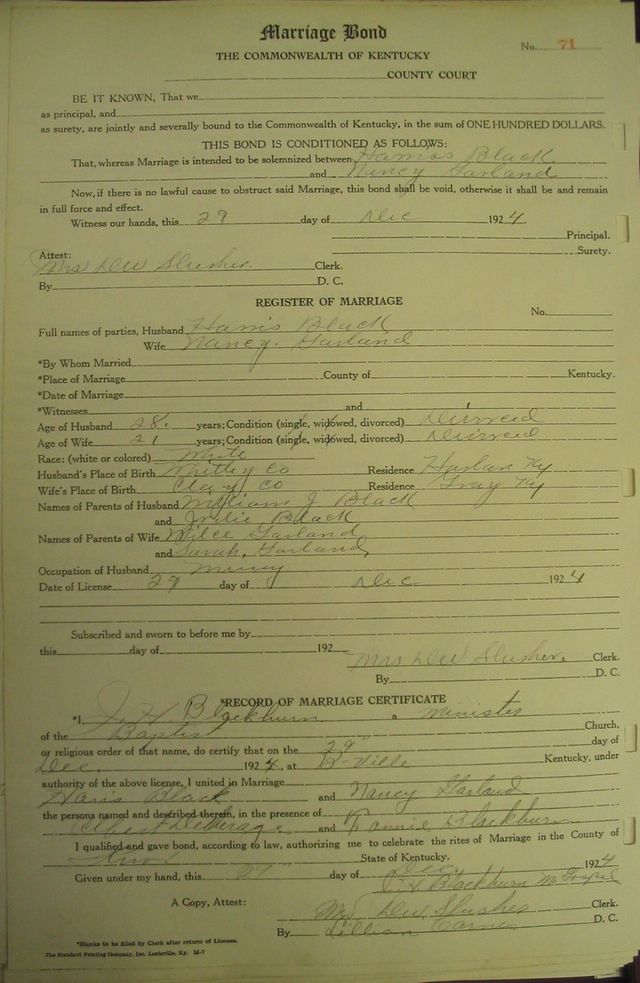 Marriage Bond
No. 71
THE COMMONWEALTH OF KENTUCKY
COUNTY COURT
BE IT KNOWN, That we
as principal, and
as surety, are jointly and severally bound to the Commonwealth of Kentucky, in the sum of ONE HUNDRED DOLLARS.
THIS BOND IS CONDITIONED AS FOLLOWS:
That, whereas Marriage is intended to be solemnized between Harris Black
and Nancy Garland
Now, if there is no lawful cause to obstruct said Marriage, this bond shall be void, otherwise it shall be and remain
in full force and effect.
Witness our hands, this 29 day of Dec 1924.
Principal.
Surety.
Attest:
Mrs DW Slusher. Clerk.
By D. C.
REGISTER OF MARRIAGE
No.
Full names of parties, Husband Harris Black
Wife Nancy. Garland
*By Whom Married
*Place of Marriage County of Kentucky.
*Date of Marriage
*Witnesses and
Age of Husband 28. years; Condition (single, widowed, divorced) Divorced
Age of Wife 21 years; Condition (single, widowed, divorced) Divorced
Race: (white or colored) White
Husband's Place of Birth Whitley Co Residence Harlan Ky
Wife's Place of Birth Clay Co Residence Gray Ky
Names of Parents of Husband William J Black
and Black
Names of Parents of Wife Garland
and Sarah. Garland
Occupation of Husband
Date of License 29 day of Dec 1924
Subscribed and sworn to before me by
this day of 192
Mrs DW Slusher. Clerk.
By D. C.
*RECORD OF MARRIAGE CERTIFICATE
*I, J. H. Blackburn a Minister
of the Baptist Church,
or religious order of that name, do certify that on the 29" day of
Dec. 1924, at B-Ville Kentucky, under
authority of the above license, I united in Marriage
Haris Black and Nancy Garland
the persons named and described therein, in the presence of
and Blackburn
I qualified and gave bond, according to law, authorizing me to celebrate the rites of Marriage in the County of
Knox State of Kentucky.
Given under my hand, this 29" day of Dec. 1924
J H Blackburn M. Gospel
A Copy, Attest: Mrs DW Slusher Clerk.
By Lillian D. C.
*Blanks to be filled by Clerk after return of License.
The Standard Printing Company, Inc. Louisville, Ky. M-7